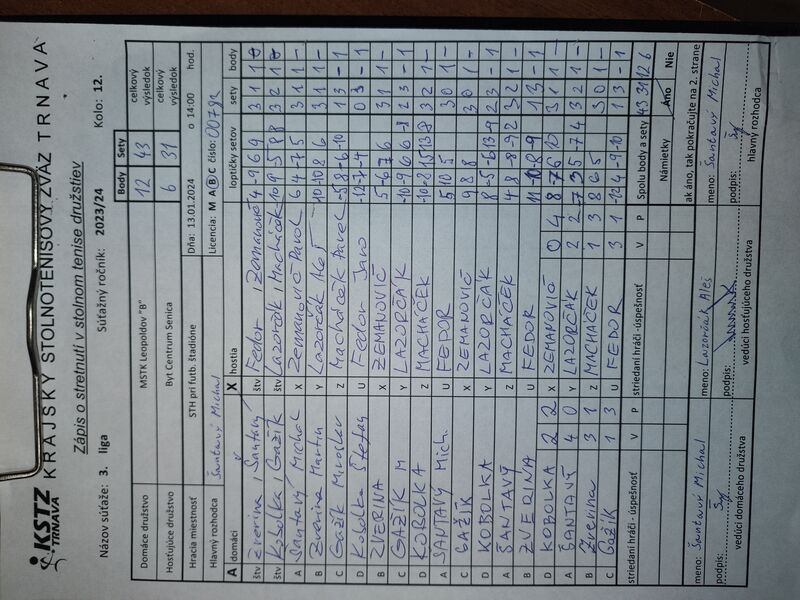 KSTZ TRNAVA KRAJSKÝ STOLNOTENISOVÝ ZVÄZ TRNAVA
Zápis o stretnutí v stolnom tenise družstiev
Názov súťaže: 3. liga Súťažný ročník: 2023/24 Kolo: 12.
Body Sety
Domáce družstvo MSTK Leopoldov "B" 12 43 celkový výsledok
Hosťujúce družstvo Byt Centrum Senica 6 31 celkový výsledok
Hracia miestnosť STH pri futb. štadióne Dňa: 13.01.2024 o 14:00 hod.
Hlavný rozhodca Šantavý Michal Licencia: M A B C číslo: 00793
A domáci X hostia loptičky setov sety body
štv Zverina / Šantavý štv Fedor / Zemanovič 4 -9 6 9 3 1 1
štv Kobolka / Gažík štv Lazorčák / Macháček 3 2 1
A Šantavý Michal X Zemanovič Pavol 6 4 -7 5 3 1 1 -
B Zverina Martin Y Lazorčák Aleš 3 1 1 -
C Gažík Miroslav Z Macháček Pavel -5 8 -6 -10 1 3 - 1
D Kobolka Štefan U Fedor Jano -12 -7 -4 0 3 - 1
B ZVERINA X ZEMANOVIČ 5 -6 7 6 3 1 1 -
C GAŽÍK M Y LAZORČÁK -10 -9 6 6 -8 2 3 - 1
D KOBOLKA Z MACHÁČEK 3 2 1 -
A ŠANTAVÝ Mich. U FEDOR 5 10 5 3 0 1 -
C GAŽÍK X ZEMANOVIČ 9 8 8 3 0 1 -
D KOBOLKA Y LAZORČÁK 8 -5 -6 13 -9 2 3 - 1
A ŠANTAVÝ Z MACHÁČEK 4 8 -8 -9 2 3 2 1 -
B ZVERINA U FEDOR 11 -10 -8 -9 1 3 - 1
D KOBOLKA 2 2 X ZEMANOVIČ 0 4 8 -7 6 10 3 1 1 -
A ŠANTAVÝ 4 0 Y LAZORČÁK 2 2 7 3 -5 -7 4 3 2 1 -
B Zverina 3 1 Z MACHÁČEK 1 3 8 6 5 3 0 1 -
C GAŽÍK 1 3 U FEDOR 3 1 -12 4 -9 -10 1 3 - 1
striedaní hráči - úspešnosť V P striedaní hráči - úspešnosť V P Spolu body a sety 43 31 12 6
Námietky Áno Nie
ak áno, tak pokračujte na 2. strane
meno: Šantavý Michal meno: Lazorčák Aleš meno: Šantavý Michal
podpis: podpis: podpis:
vedúci domáceho družstva vedúci hosťujúceho družstva hlavný rozhodca